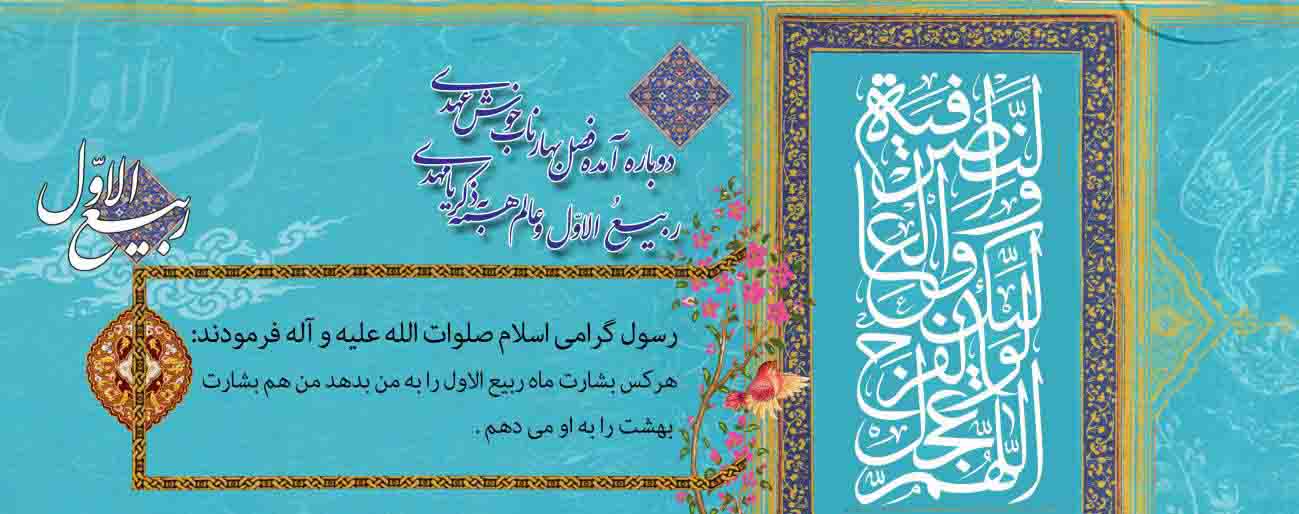 اللّهمّ عجّل لولیّک الفرج والعافیة والنّصر
دوباره آمده فصل بهار ناب خوش عهدی
ربیعُ الاوّل و عالم همه به ذکر یا مهدی
ربیع الاوّل
رسول گرامی اسلام صلوات الله علیه و آله فرمودند:
هرکس بشارت ماه ربیع الاول را به من بدهد من هم بشارت
بهشت را به او می دهم .